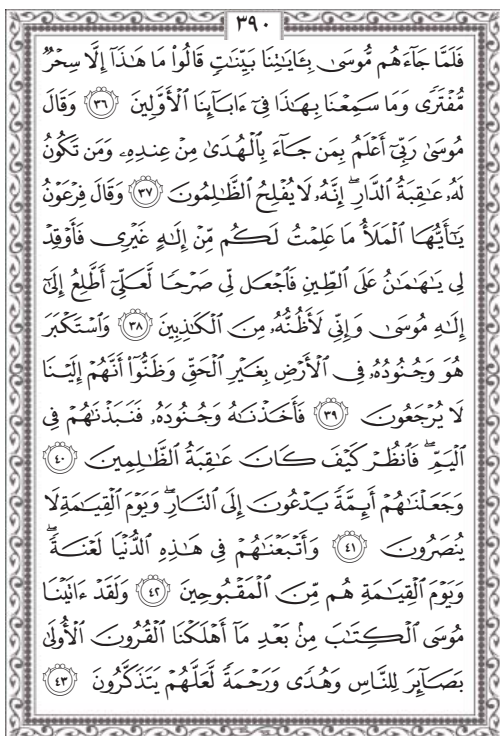 ٣٩٠
فَلَمَّا جَآءَهُم مُّوسَىٰ بِـَٔايَٰتِنَا بَيِّنَٰتٍ قَالُوا۟ مَا هَٰذَآ إِلَّا سِحْرٌ
مُّفْتَرًى وَمَا سَمِعْنَا بِهَٰذَا فِىٓ ءَابَآئِنَا ٱلْأَوَّلِينَ ٣٦ وَقَالَ
مُوسَىٰ رَبِّىٓ أَعْلَمُ بِمَن جَآءَ بِٱلْهُدَىٰ مِنْ عِندِهِۦ وَمَن تَكُونُ
لَهُۥ عَٰقِبَةُ ٱلدَّارِ ۖ إِنَّهُۥ لَا يُفْلِحُ ٱلظَّٰلِمُونَ ٣٧ وَقَالَ فِرْعَوْنُ
يَٰٓأَيُّهَا ٱلْمَلَأُ مَا عَلِمْتُ لَكُم مِّنْ إِلَٰهٍ غَيْرِى فَأَوْقِدْ
لِى يَٰهَٰمَٰنُ عَلَى ٱلطِّينِ فَٱجْعَل لِّى صَرْحًا لَّعَلِّىٓ أَطَّلِعُ إِلَىٰٓ
إِلَٰهِ مُوسَىٰ وَإِنِّى لَأَظُنُّهُۥ مِنَ ٱلْكَٰذِبِينَ ٣٨ وَٱسْتَكْبَرَ
هُوَ وَجُنُودُهُۥ فِى ٱلْأَرْضِ بِغَيْرِ ٱلْحَقِّ وَظَنُّوٓا۟ أَنَّهُمْ إِلَيْنَا
لَا يُرْجَعُونَ ٣٩ فَأَخَذْنَٰهُ وَجُنُودَهُۥ فَنَبَذْنَٰهُمْ فِى
ٱلْيَمِّ ۖ فَٱنظُرْ كَيْفَ كَانَ عَٰقِبَةُ ٱلظَّٰلِمِينَ ٤٠
وَجَعَلْنَٰهُمْ أَئِمَّةً يَدْعُونَ إِلَى ٱلنَّارِ ۖ وَيَوْمَ ٱلْقِيَٰمَةِ لَا
يُنصَرُونَ ٤١ وَأَتْبَعْنَٰهُمْ فِى هَٰذِهِ ٱلدُّنْيَا لَعْنَةً ۖ
وَيَوْمَ ٱلْقِيَٰمَةِ هُم مِّنَ ٱلْمَقْبُوحِينَ ٤٢ وَلَقَدْ ءَاتَيْنَا
مُوسَى ٱلْكِتَٰبَ مِنۢ بَعْدِ مَآ أَهْلَكْنَا ٱلْقُرُونَ ٱلْأُولَىٰ
بَصَآئِرَ لِلنَّاسِ وَهُدًى وَرَحْمَةً لَّعَلَّهُمْ يَتَذَكَّرُونَ ٤٣